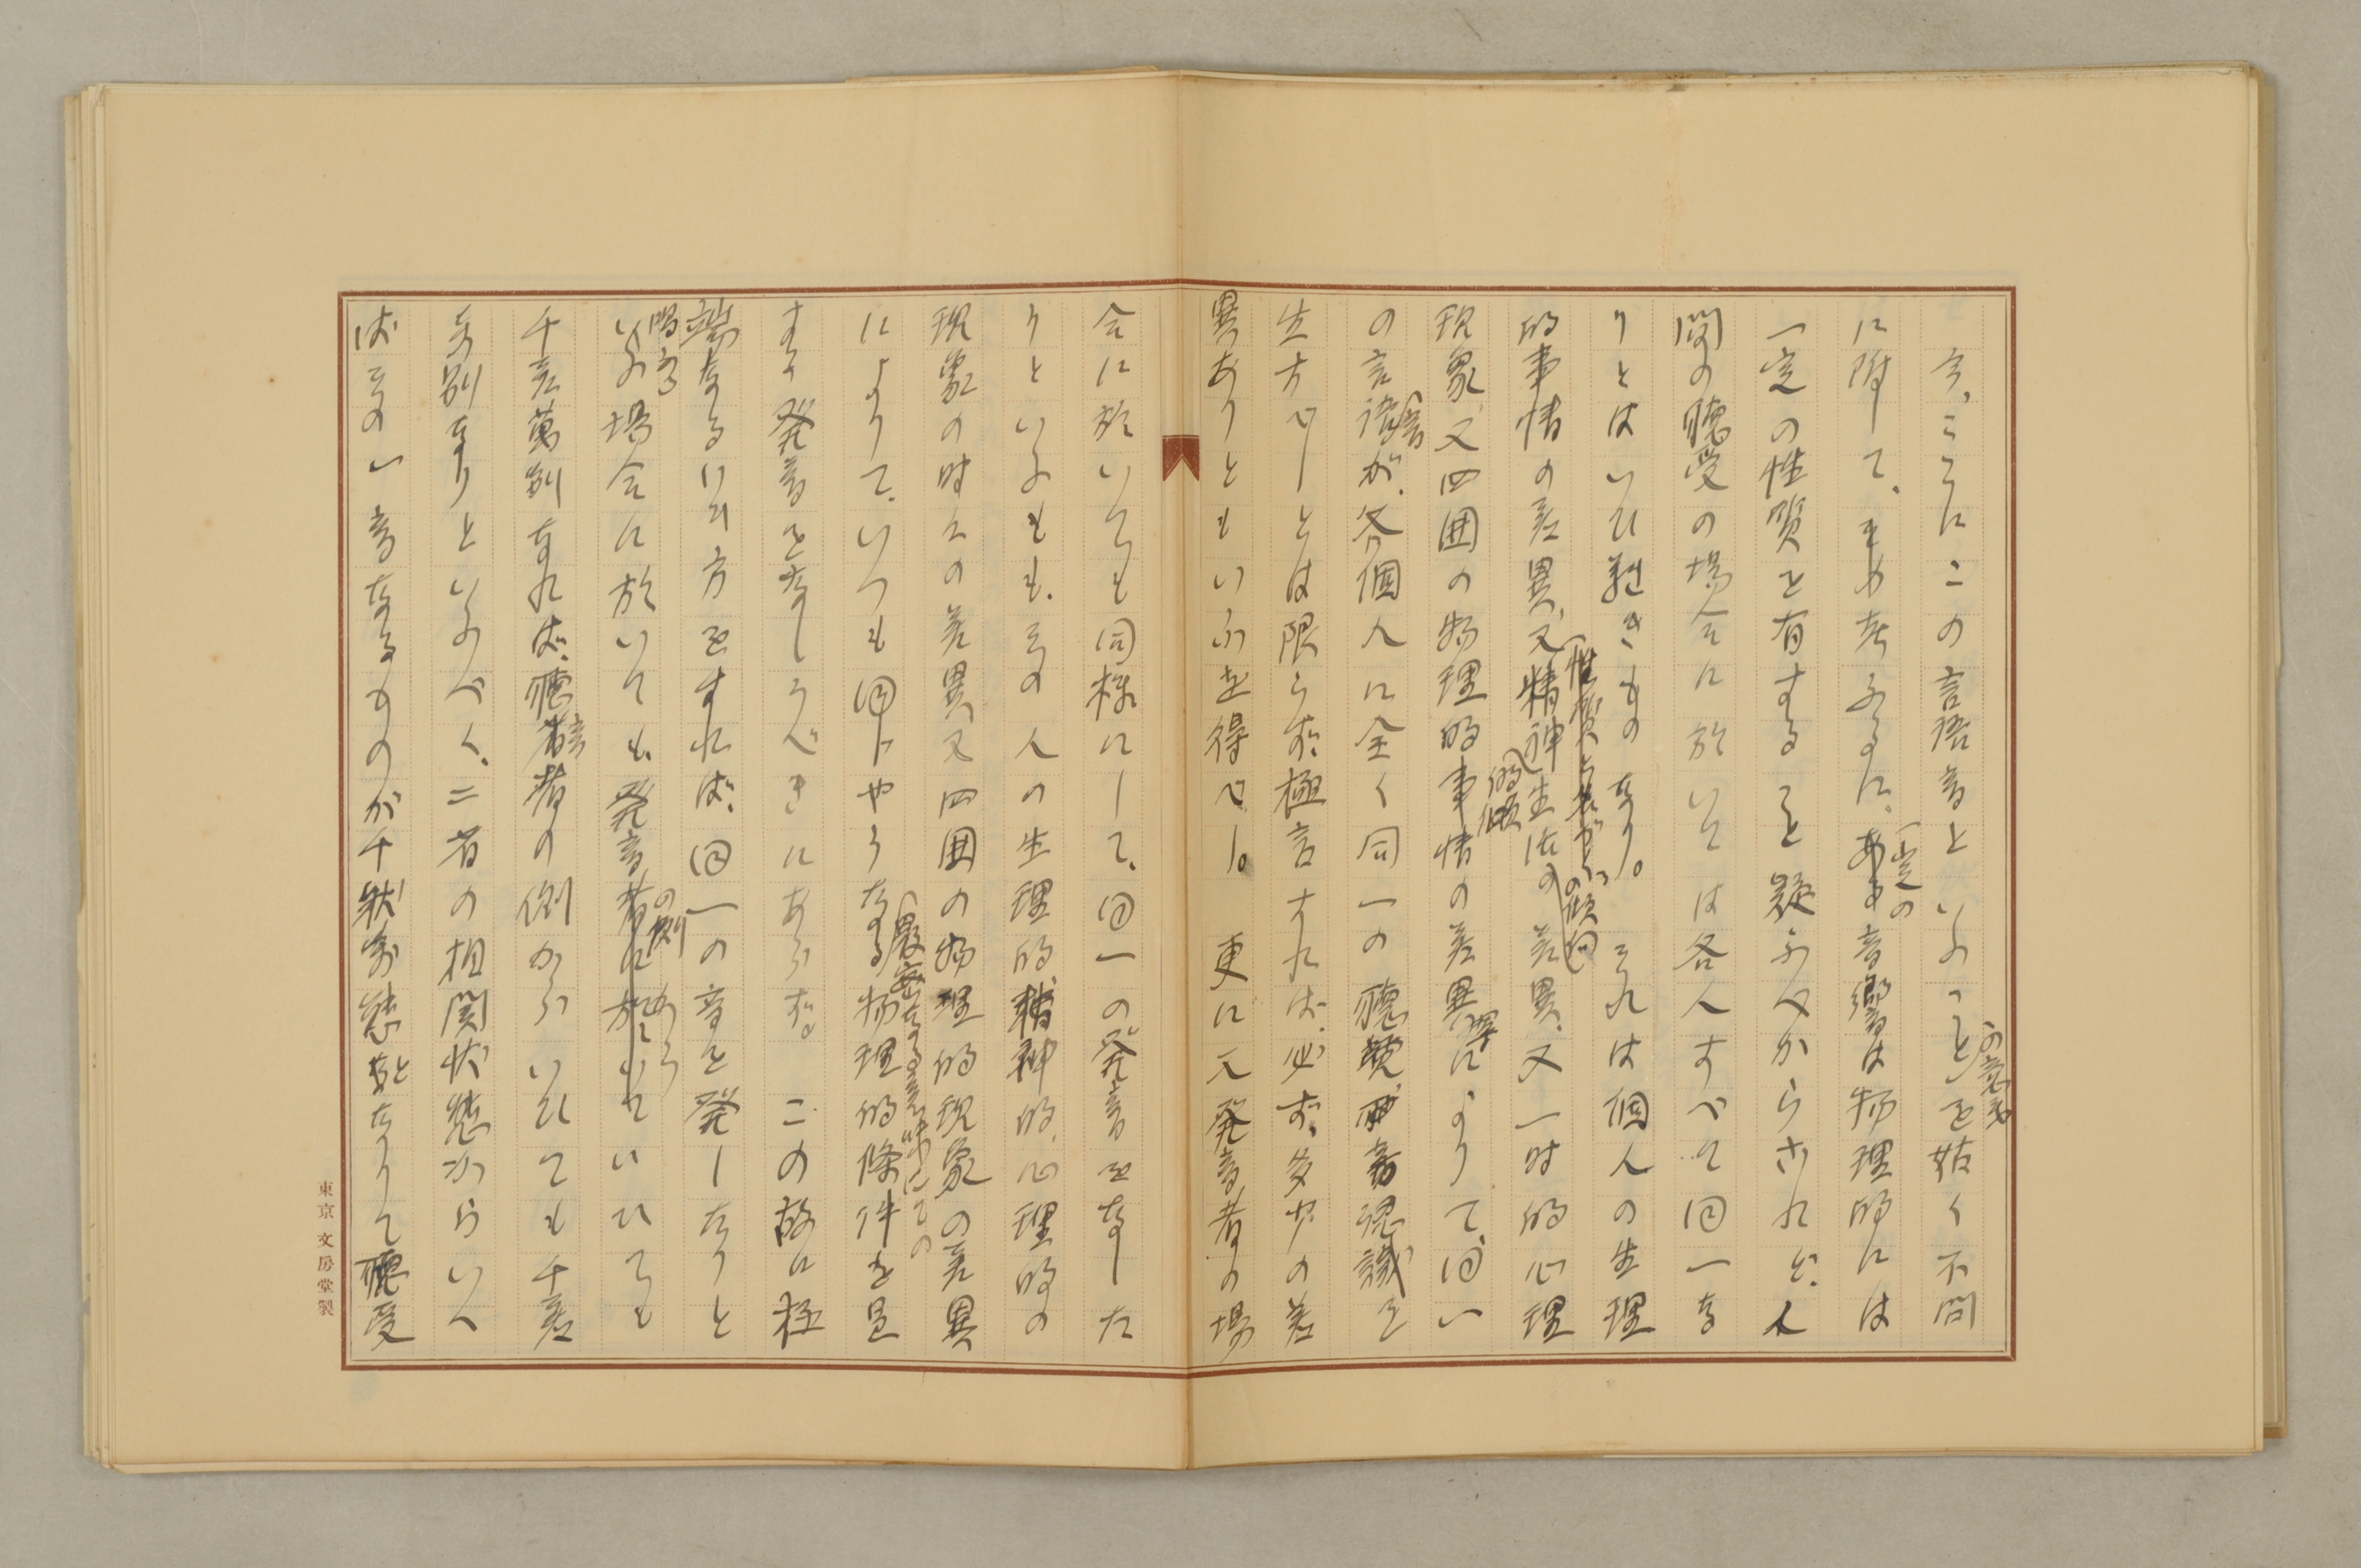 今、ここにこの言語音といふことの意義を姑く不問
に附して、その考ふるに、一定の音響は物理的には
一定の性質を有すること疑ふべからざれど、人
間の聴受の場合に於いては各人すべて同一な
りとはいひ難きものなり。それは個人の生理
的事情の差異、又精神生活の差異、又一時的心理
現象、又四囲の物理的事情の差異によりて、同一
の言語音が、各個人に全く同一の聴覚認識を
生ずべしとは限らず、極言すれば、必ず、多少の差
異ありともいふを得べし。更に又発音者の場
合に於いても同様にして、同一の発音をなした
りといふも、その人の生理的、精神的、心理的の
現象の時々の差異又四囲の物理的現象の差異
によりて、いつも同じやうなる(最密なる意味にての物理的條件を具
する発音をなしうべきにあらず。この故に極
端なるいひ方をすれば、同一の音を発したりと
いふ場合に於いても、発音者の側よりいひても
千差萬別なれば、聴音者の側からいひても千差
万別なりといふべく、二者の相関状態からいへ
ばその一音なるものが千状万態となりて聴受
東京 文房堂製